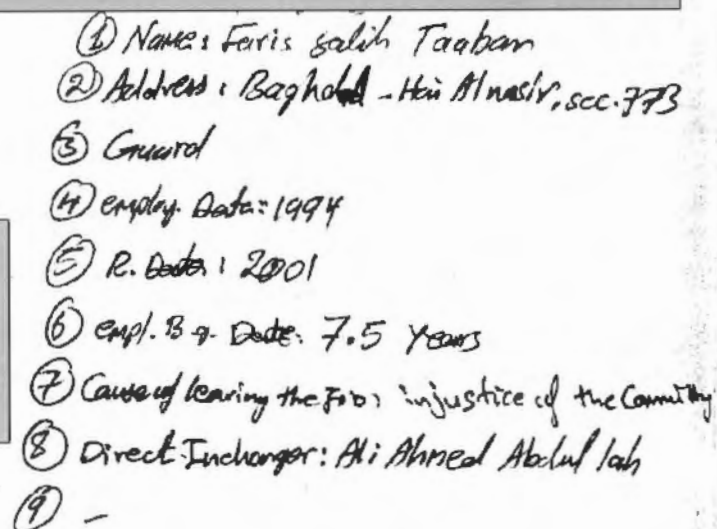 ① Name: Faris salih Taaban
② Address: Baghdad - Hai Al nasir, sec. 773
③ Guard
④ employ. Date: 1994
⑤ R. Date: 2001
⑥ empl. Date: 7.5 years
⑦ Cause of leaving the Job: injustice of the
⑧ Direct Incharger: Ali Ahmed Abdul lah
⑨ -